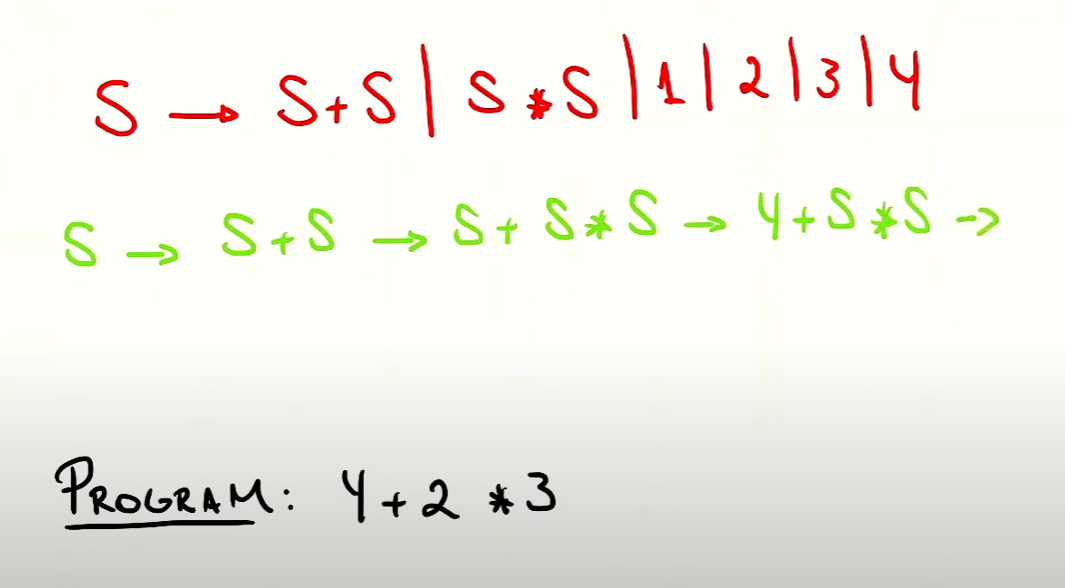 S → S+S | S*S | 1 | 2 | 3 | 4
S → S+S → S+S*S → 4+S*S →
PROGRAM: 4+2*3